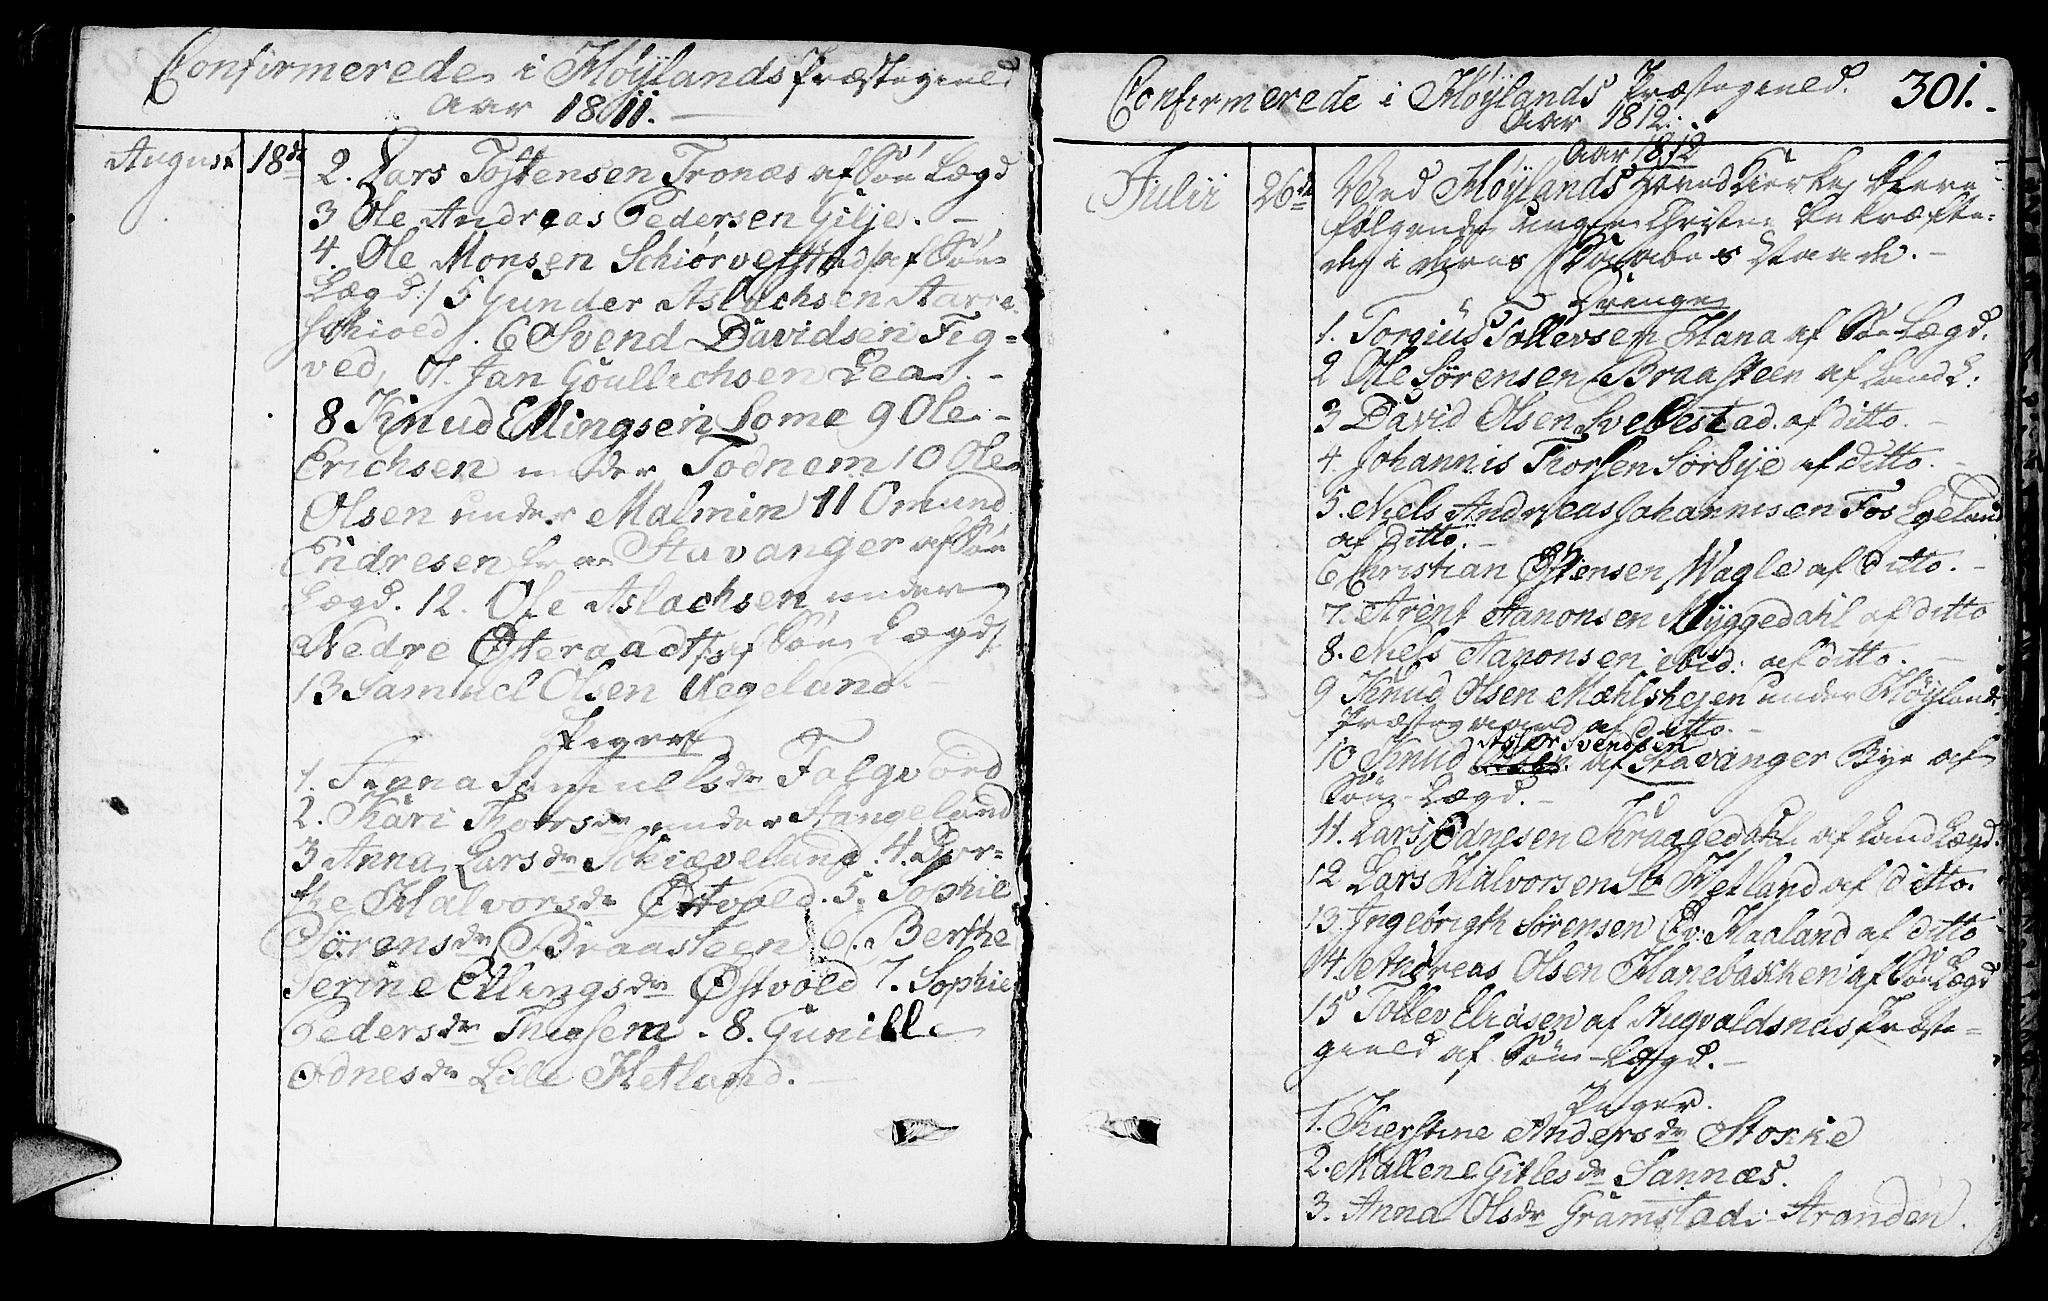 Confirmerede i Høylands Præstegield
Aar 1811.
August 18de
2. Lars Tostensen Tronæs af Søe Lægd
3 Ole Andreas Pedersen Gilje.
4. Ole Monsen Schiørvestad /:af Søe
Lægd:/ 5 Gunder Aslachsen Aarre-
schiold. 6 Svend Davidsen Fig-
ved, 7. Jan Goullichsen Lea.
8 Knud Ellingsen Some 9 Ole
Erichsen under Todnem 10 Ole
Olsen under Malmin 11 Omund
Endresen fra Stavanger af Søe
Lægd. 12. Ole Aslachsen under
Nedre Østeraadt /:af Søe Lægd:/
13 Samuel Olsen Uegeland.
Piger
1. Anna Samuelsdr Folgevord
2. Kari Thorsdr under Stangeland
3 Anna Larsdr Schiæveland. 4. Dor-
the Halvorsdr Østvold. 5. Sophie
Sørensdr Braasteen 6. Berthe
Serine Ellingsdr Østvold 7. Sophie
Pedersdr Thiosem. 8. Gunille
Odnesdr Lille Hetland.
Confirmerede i Høylands Præstegield.
301.
Aar 1812.
Aar 1812
Julii 26de
Ved Høylands Hoved Kierke bleve
følgende unge Christne bekræfte-
de i deres Daabes Naade.
Drenge
1. Torgiús Tollevsen Hana af Søe Lægd.
2 Ole Sørensen Braasteen af Land L:
3 David Olsen Svebestad. af ditto.
4. Johannis Thorsen Sørbye af ditto.
5. Niels Andreas Johannisen Fos Egeland
af Ditto.
6 Christian Østensen Wagle af ditto.
7. Arent Aanonsen Myggedahl af ditto
8. Niels Aanonsen ibid: af ditto.
9 Knud Olsen Mæhlshejen under Høylands
Præstegaard af ditto.
Aslor Svendsen
10 Knud Olsen af Stavanger Bye af
Søe-Lægd.
11. Lars Odnesen Skraagedahl af Land Lægd.
12 Lars Halvorsen St. Hetland af ditto.
13. Ingebrigth Sørensen Øv. Haaland af ditto
14. Andreas Olsen Hanebaschen af Søe Lægd
15 Tollev Eliasen af Augvaldsnæs Præste-
gield af Søe-Lægd.
Piger.
1. Kierstine Andersdr Storke
2. Mallene Gitlesdr Sannæs.
3. Anna Olsdr Gramstad: Aranden.